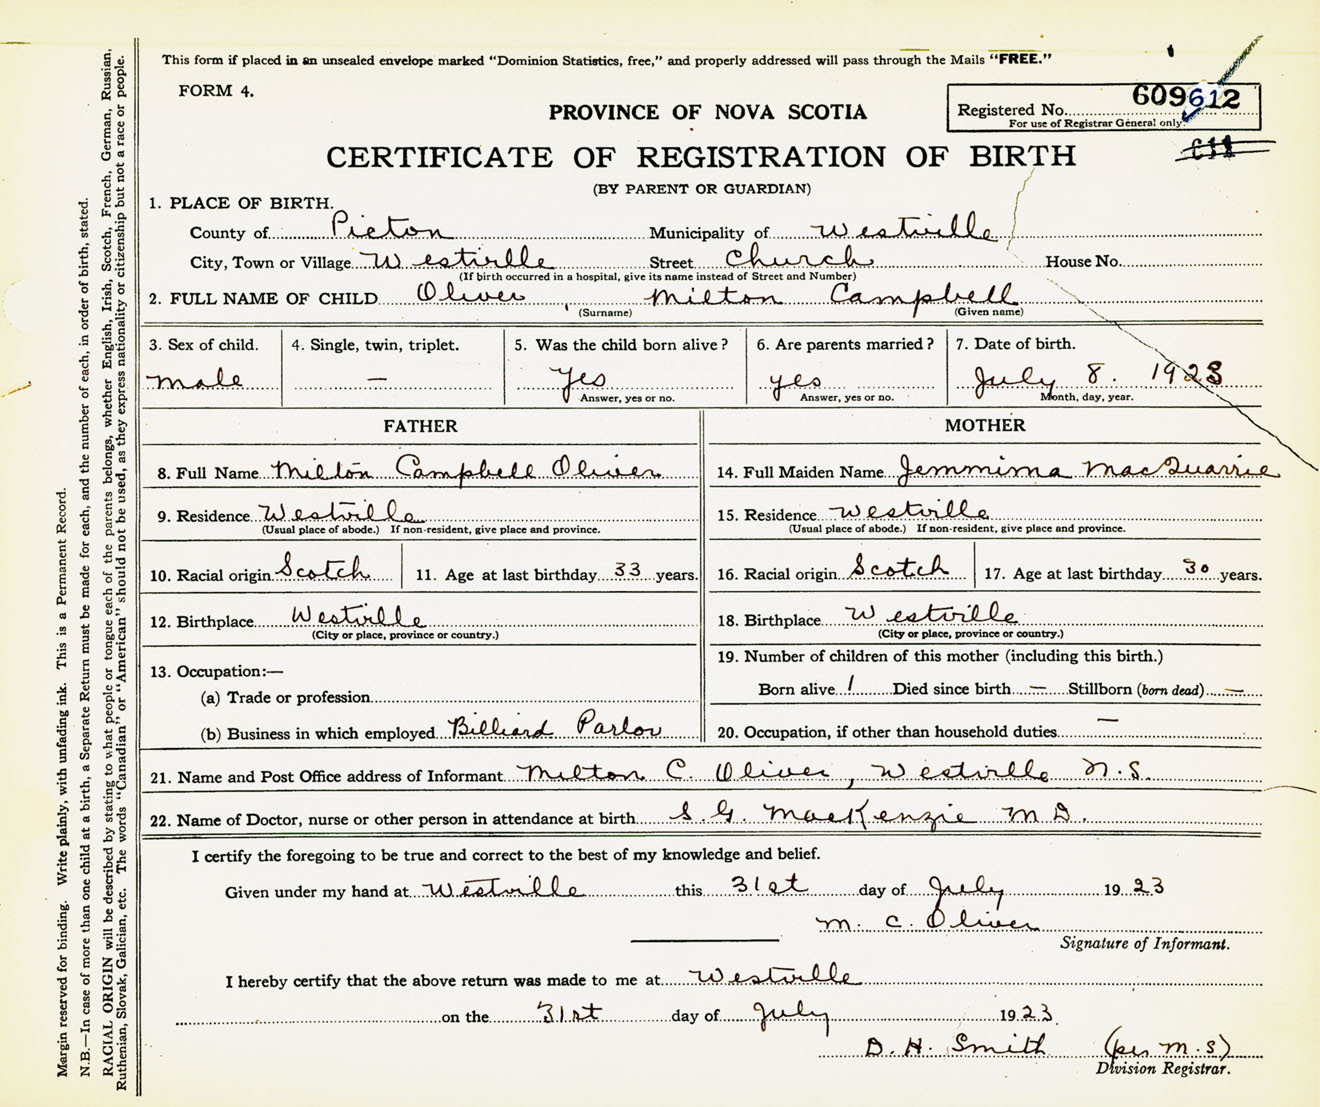 This form if placed in an unsealed envelope marked "Dominion Statistics, free," and properly addressed will pass through the Mails "FREE."
FORM 4.
PROVINCE OF NOVA SCOTIA
Registered No. 609612
For use of Registrar General only.
CERTIFICATE OF REGISTRATION OF BIRTH
611
(BY PARENT OR GUARDIAN)
1. PLACE OF BIRTH.
County of Picton Municipality of Westville
City, Town or Village Westville Street Church House No.
(If birth occurred in a hospital, give its name instead of Street and Number)
2. FULL NAME OF CHILD Oliver, Milton Campbell
(Surname) (Given name)
3. Sex of child. 4. Single, twin, triplet. 5. Was the child born alive? 6. Are parents married? 7. Date of birth.
male — Yes yes July 8. 1923
Answer, yes or no. Answer, yes or no. Month, day, year.
FATHER MOTHER
8. Full Name Milton Campbell Oliver 14. Full Maiden Name Jemmima MacQuarrie
9. Residence Westville 15. Residence Westville
(Usual place of abode.) If non-resident, give place and province. (Usual place of abode.) If non-resident, give place and province.
10. Racial origin Scotch 11. Age at last birthday 33 years. 16. Racial origin Scotch 17. Age at last birthday 30 years.
12. Birthplace Westville 18. Birthplace Westville
(City or place, province or country.) (City or place, province or country.)
13. Occupation:— 19. Number of children of this mother (including this birth.)
(a) Trade or profession Born alive 1 Died since birth — Stillborn (born dead) —
(b) Business in which employed Billiard Parlor 20. Occupation, if other than household duties —
21. Name and Post Office address of Informant Milton C. Oliver, Westville N.S.
22. Name of Doctor, nurse or other person in attendance at birth S. G. MacKenzie M D.
I certify the foregoing to be true and correct to the best of my knowledge and belief.
Given under my hand at Westville this 31st day of July 1923
M. C. Oliver
Signature of Informant.
I hereby certify that the above return was made to me at Westville
on the 31st day of July 1923
D. H. Smith (per M. S)
Division Registrar.
Margin reserved for binding. Write plainly, with unfading ink. This is a Permanent Record.
N.B.—In case of more than one child at a birth, a Separate Return must be made for each, and the number of each, in order of birth, stated.
RACIAL ORIGIN will be described by stating to what people or tongue each of the parents belongs, whether English, Irish, Scotch, French, German, Russian,
Ruthenian, Slovak, Galician, etc. The words "Canadian" or "American" should not be used, as they express nationality or citizenship but not a race or people.